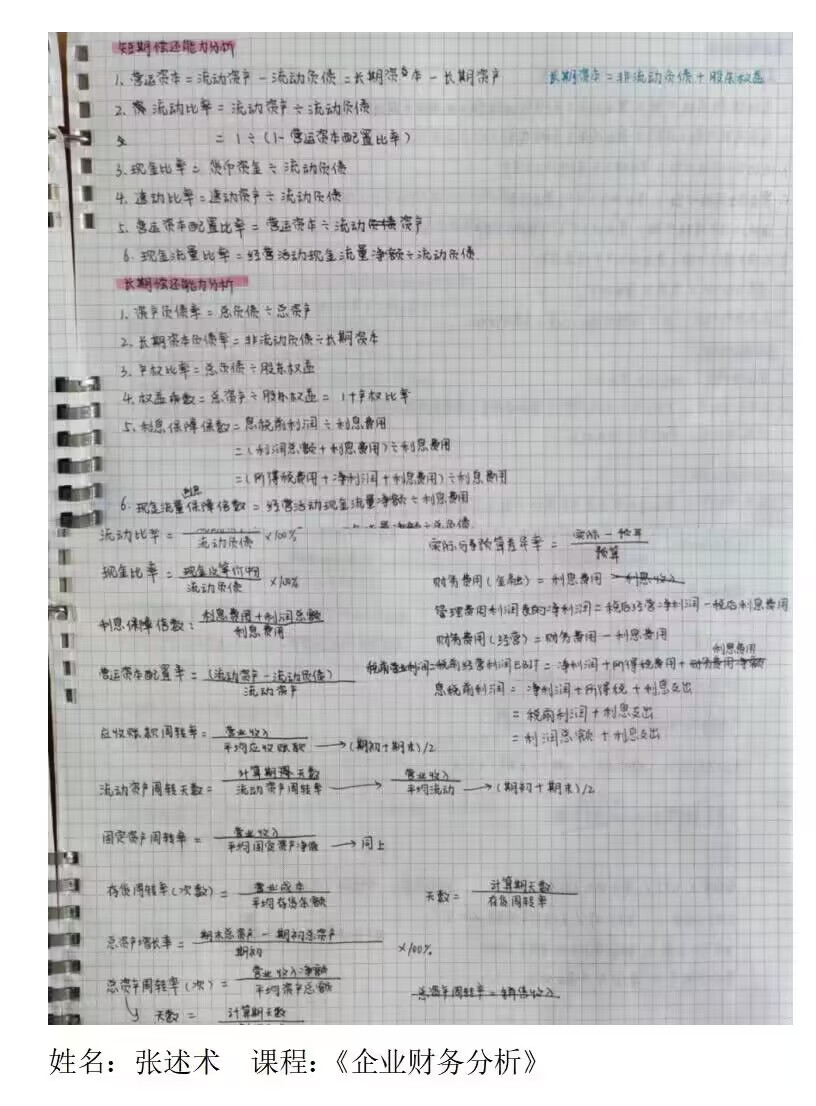 短期偿还能力分析
1. 营运资本 = 流动资产 - 流动负债 = 长期资本 - 长期资产 长期资本 = 非流动负债 + 股东权益
2. 流动比率 = 流动资产 ÷ 流动负债
= 1 ÷ (1 - 营运资本配置比率)
3. 现金比率 = 货币资金 ÷ 流动负债
4. 速动比率 = 速动资产 ÷ 流动负债
5. 营运资本配置比率 = 营运资本 ÷ 流动资产
6. 现金流量比率 = 经营活动现金流量净额 ÷ 流动负债
长期偿还能力分析
1. 资产负债率 = 总负债 ÷ 总资产
2. 长期资本负债率 = 非流动负债 ÷ 长期资本
3. 产权比率 = 总负债 ÷ 股东权益
4. 权益乘数 = 总资产 ÷ 股东权益 = 1 + 产权比率
5. 利息保障倍数 = 息税前利润 ÷ 利息费用
= (利润总额 + 利息费用) ÷ 利息费用
= (所得税费用 + 净利润 + 利息费用) ÷ 利息费用
6. 现金流量利息保障倍数 = 经营活动现金流量净额 ÷ 利息费用
流动比率 = 流动负债 ×100% 实际与预算差异率 = 实际 - 预算
预算
现金比率 = 现金及等价物 财务费用(金融) = 利息费用 - 利息收入
流动负债 ×100%
管理费用利润表的净利润 = 税后经营净利润 - 税后利息费用
利息保障倍数: 利息费用 + 利润总额
利息费用
财务费用(经营) = 财务费用 - 利息费用
利息费用
营运资本配置率 = (流动资产 - 流动负债) 税前经营利润EBIT = 净利润 + 所得税费用 + 财务费用净额
流动资产
息税前利润 = 净利润 + 所得税 + 利息支出
= 税前利润 + 利息支出
应收账款周转率 = 营业收入
平均应收账款 → (期初 + 期末)/2
= 利润总额 + 利息支出
流动资产周转天数 = 计算期天数 → 营业收入
流动资产周转率 平均流动 → (期初 + 期末)/2
固定资产周转率 = 营业收入
平均固定资产净值 → 同上
存货周转率(次数) = 营业成本 天数 = 计算期天数
平均存货余额 存货周转率
总资产增长率 = 期末总资产 - 期初总资产
期初 ×100%
总资产周转率(次) = 营业收入净额
平均资产总额 总资产周转率 = 销售收入
天数 = 计算期天数
姓名：张述术 课程：《企业财务分析》